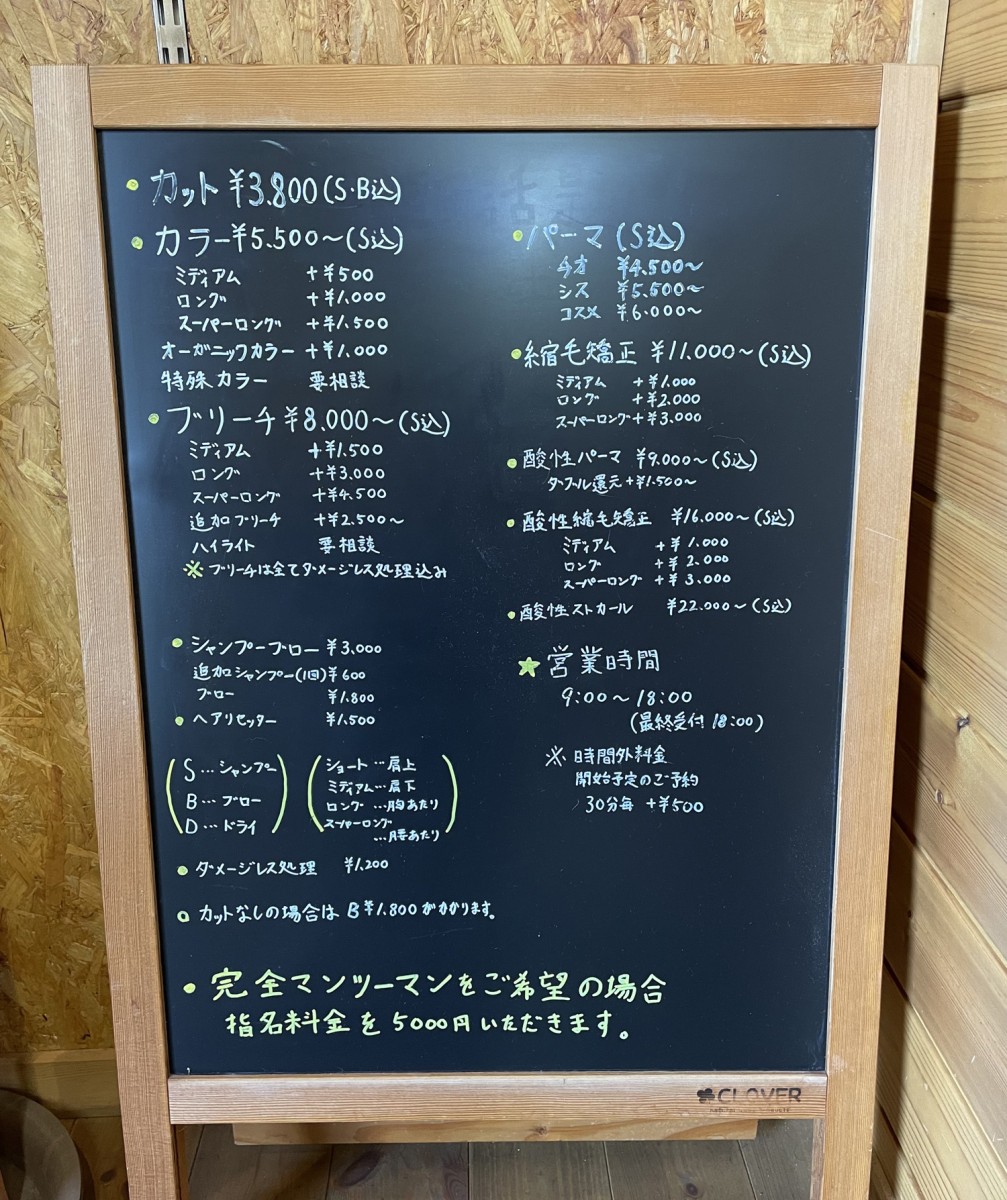 カット ¥3.800(S・B込)
カラー¥5.500〜(S込)
ミディアム +¥500
ロング +¥1.000
スーパーロング +¥1.500
オーガニックカラー +¥1.000
特殊カラー 要相談
ブリーチ ¥8.000〜(S込)
ミディアム +¥1.500
ロング +¥3.000
スーパーロング +¥4.500
追加ブリーチ +¥2.500〜
ハイライト 要相談
※ ブリーチは全てダメージレス処理込み
シャンプーブロー ¥3,000
追加シャンプー(1回)¥600
ブロー ¥1.800
ヘアリセッター ¥1.500
S…シャンプー
B…ブロー
D…ドライ
ショート…肩上
ミディアム…肩下
ロング…胸あたり
スーパーロング
…腰あたり
ダメージレス処理 ¥1,200
カットなしの場合は B¥1.800がかかります。
パーマ (S込)
チオ ¥4.500〜
シス ¥5.500〜
コスメ ¥6.000〜
縮毛矯正 ¥11.000〜(S込)
ミディアム +¥1.000
ロング +¥2.000
スーパーロング +¥3.000
酸性パーマ ¥9.000〜(S込)
ダブル還元 +¥1.500〜
酸性縮毛矯正 ¥16.000〜(S込)
ミディアム +¥1.000
ロング +¥2.000
スーパーロング +¥3.000
酸性ストカール ¥22.000〜(S込)
★ 営業時間
9:00〜18:00
(最終受付 18:00)
※ 時間外料金
開始予定のご予約
30分毎 +¥500
完全マンツーマンをご希望の場合
指名料金を5000円いただきます。
CLOVER